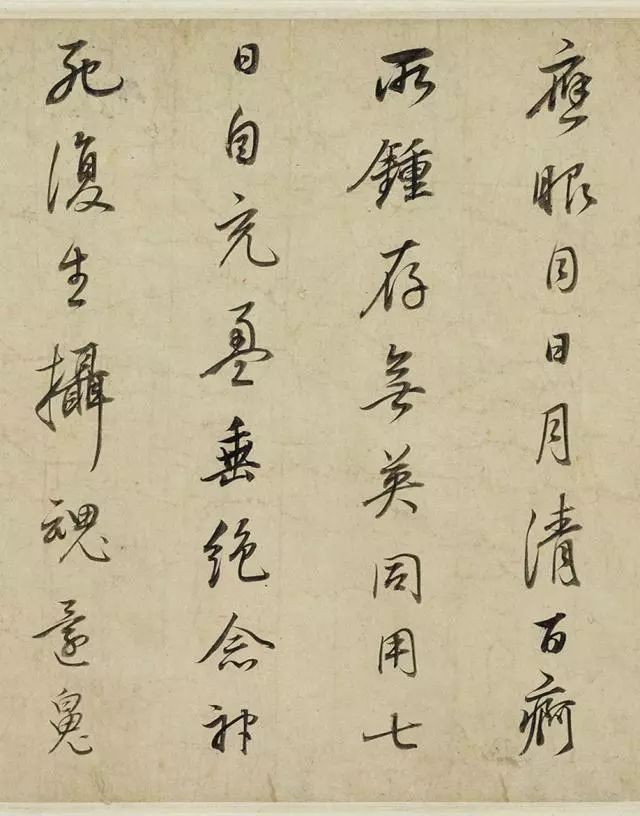 應眼目日月清百痾
所鍾存無英同用七
日自充盈垂絕念神
死復生攝魂還魄